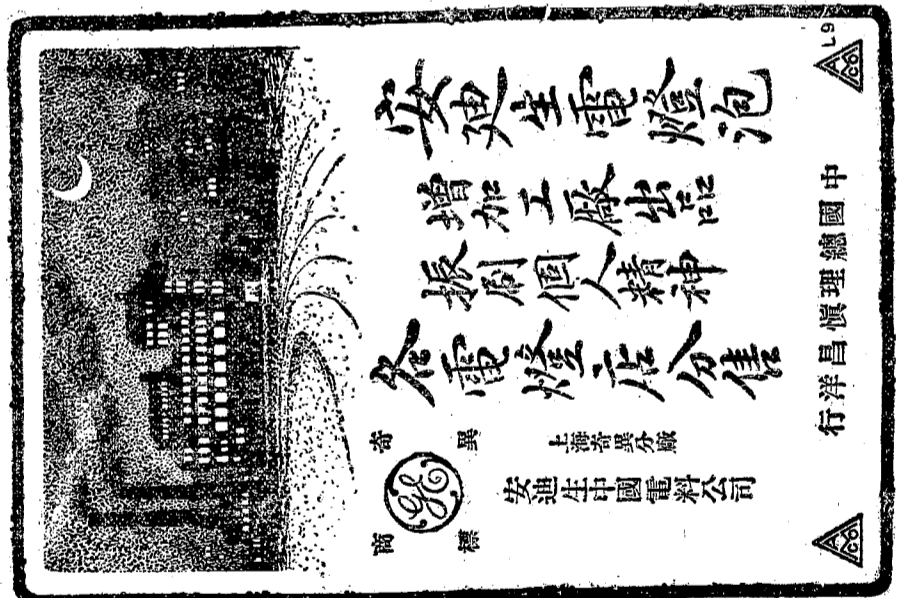 安迪生電燈泡
增加工廠出品
振刷個人精神
各電燈店分售
奇異
商標
GE
上海奇異分廠
安迪生中國電料公司
中國總理慎昌洋行
L9